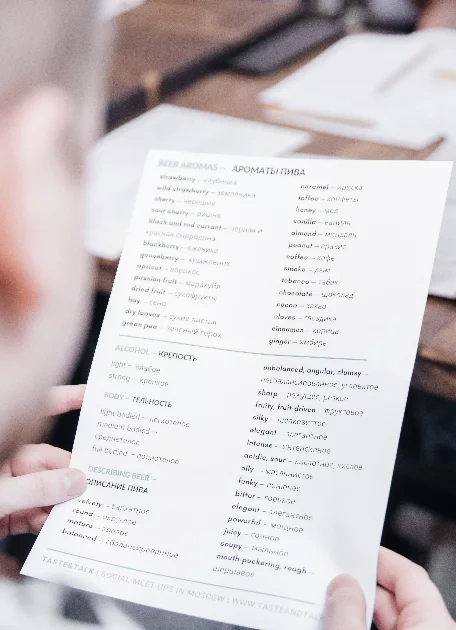 BEER AROMAS – АРОМАТЫ ПИВА
strawberry – клубника
wild strawberry – земляника
cherry – черешня
sour cherry – вишня
black and red currant – чёрная и
красная смородина
blackberry – ежевика
gooseberry – крыжовник
apricot – абрикос
passion fruit – маракуйя
dried fruit – сухофрукты
hay – сено
dry leaves – сухие листья
green pea – зеленый горох
caramel – ириска
toffee – конфеты
honey – мёд
vanilla – ваниль
almond – миндаль
peanut – арахис
coffee – кофе
smoke – дым
tobacco – табак
chocolate – шоколад
cocoa – какао
cloves – гвоздика
cinnamon – корица
ginger – имбирь
ALCOHOL – КРЕПОСТЬ
light – слабое
strong – крепкое
BODY – ТЕЛЬНОСТЬ
light-bodied –
medium-bodied –
full-bodied –
DESCRIBING BEER –
ОПИСАНИЕ ПИВА
velvety – бархатное
round – округлое
mature – зрелое
balanced – сбалансированное
unbalanced, angular, clumsy –
несбалансированное, угловатое
sharp – режущее, резкое
fruity, fruit-driven – фруктовое
silky – шелковистое
elegant – элегантное
intense – интенсивное
acidic, sour – кислотное, кислое
oily – маслянистое
funky –
bitter – горькое
elegant – элегантное
powerful – мощное
juicy – сочное
soupy – мыльное
mouth-puckering, rough –
шершавое
TASTE&TALK | SOCIAL MEET-UPS IN MOSCOW | WWW.TASTEANDTAL